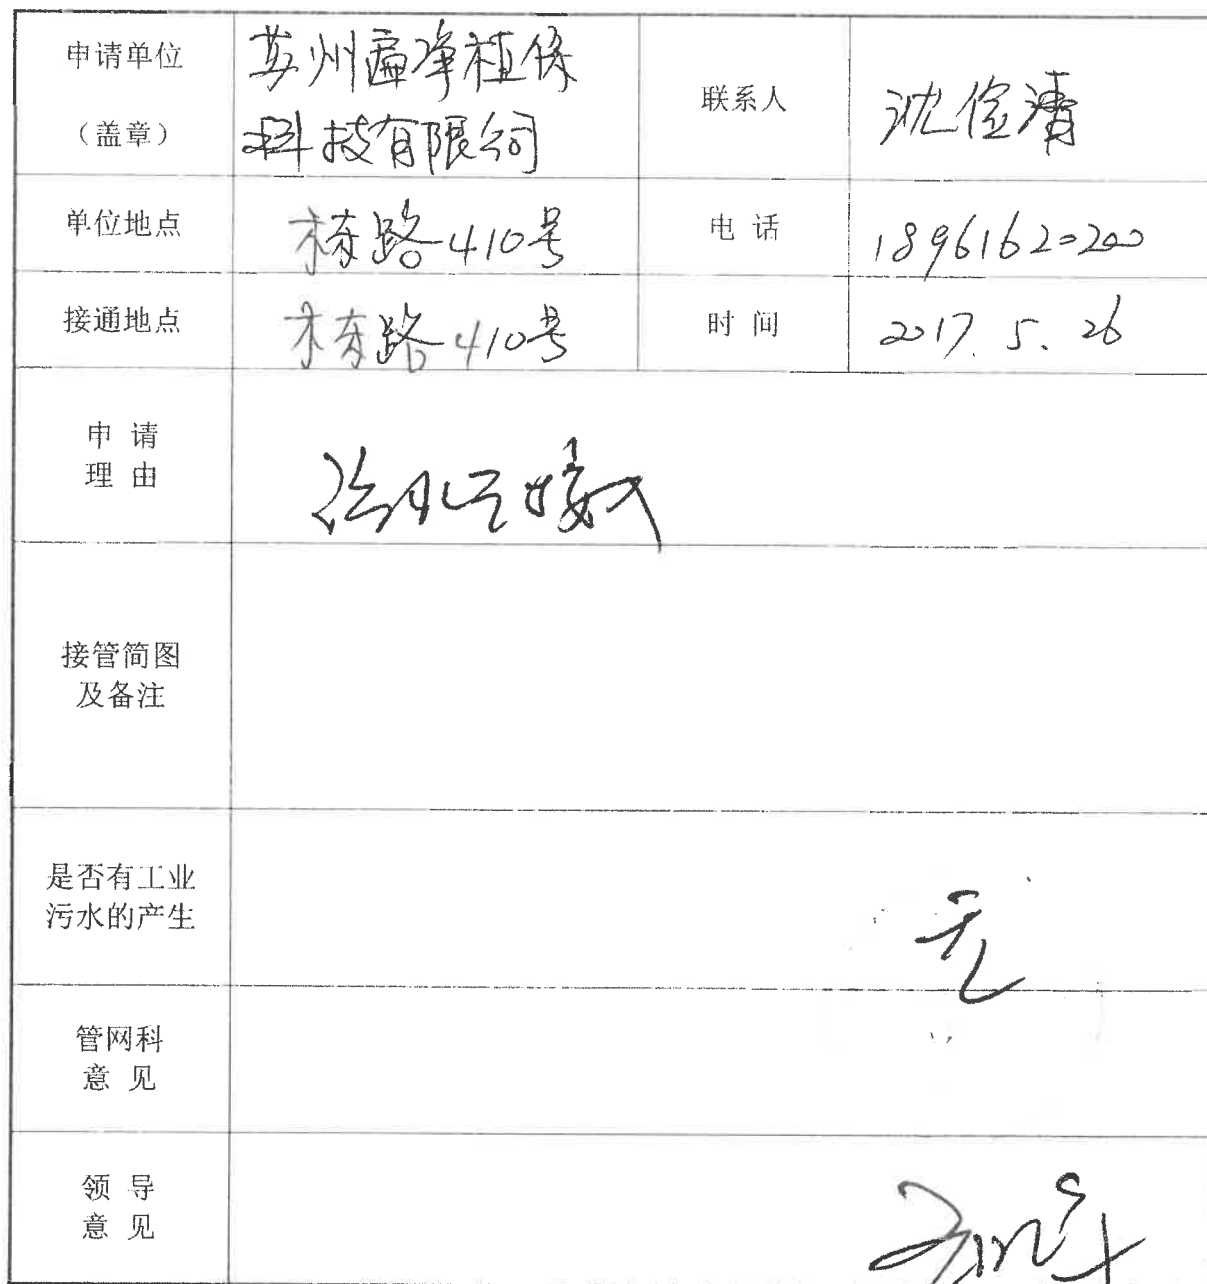 申请单位
（盖章）
苏州遍净植保
科技有限公司
联系人
沈俊清
单位地点
木东路410号
电 话
18961620200
接通地点
木东路410号
时 间
2017. 5. 26
申 请
理 由
接入
接管简图
及备注
是否有工业
污水的产生
无
管网科
意 见
领 导
意 见